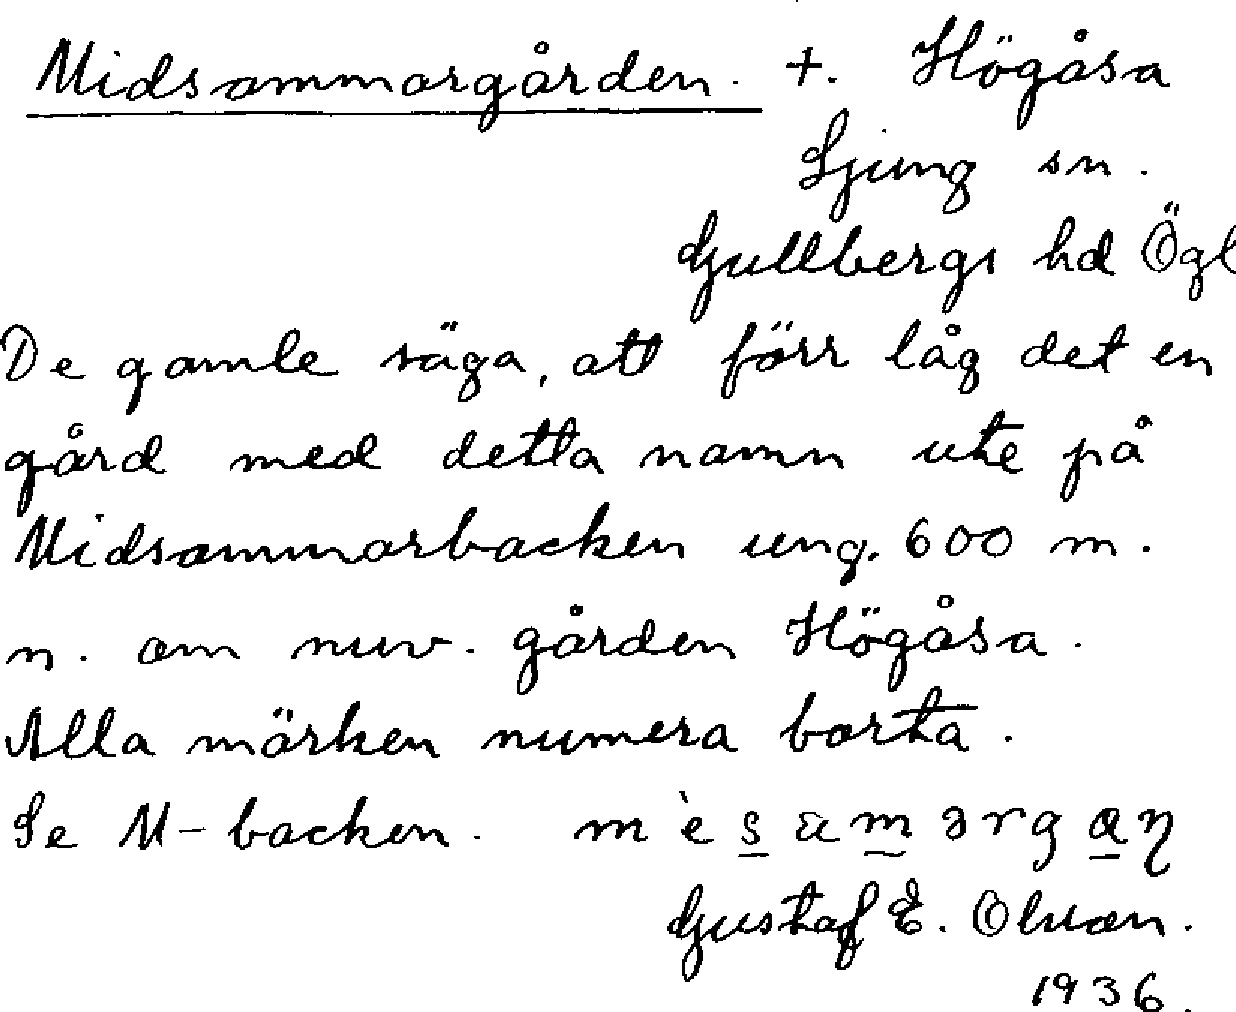 Midsommorgården. +. Högåsa
Ljung sn.
Gullbergs hd Ögl
De gamle säga, att förr låg det en
gård med detta namn ute på
Midsommorbacken ung. 600 m.
n. om nuv. gården Högåsa.
Alla märken numera borta.
Se M-backen.
Gustaf E. Olson.
1936.